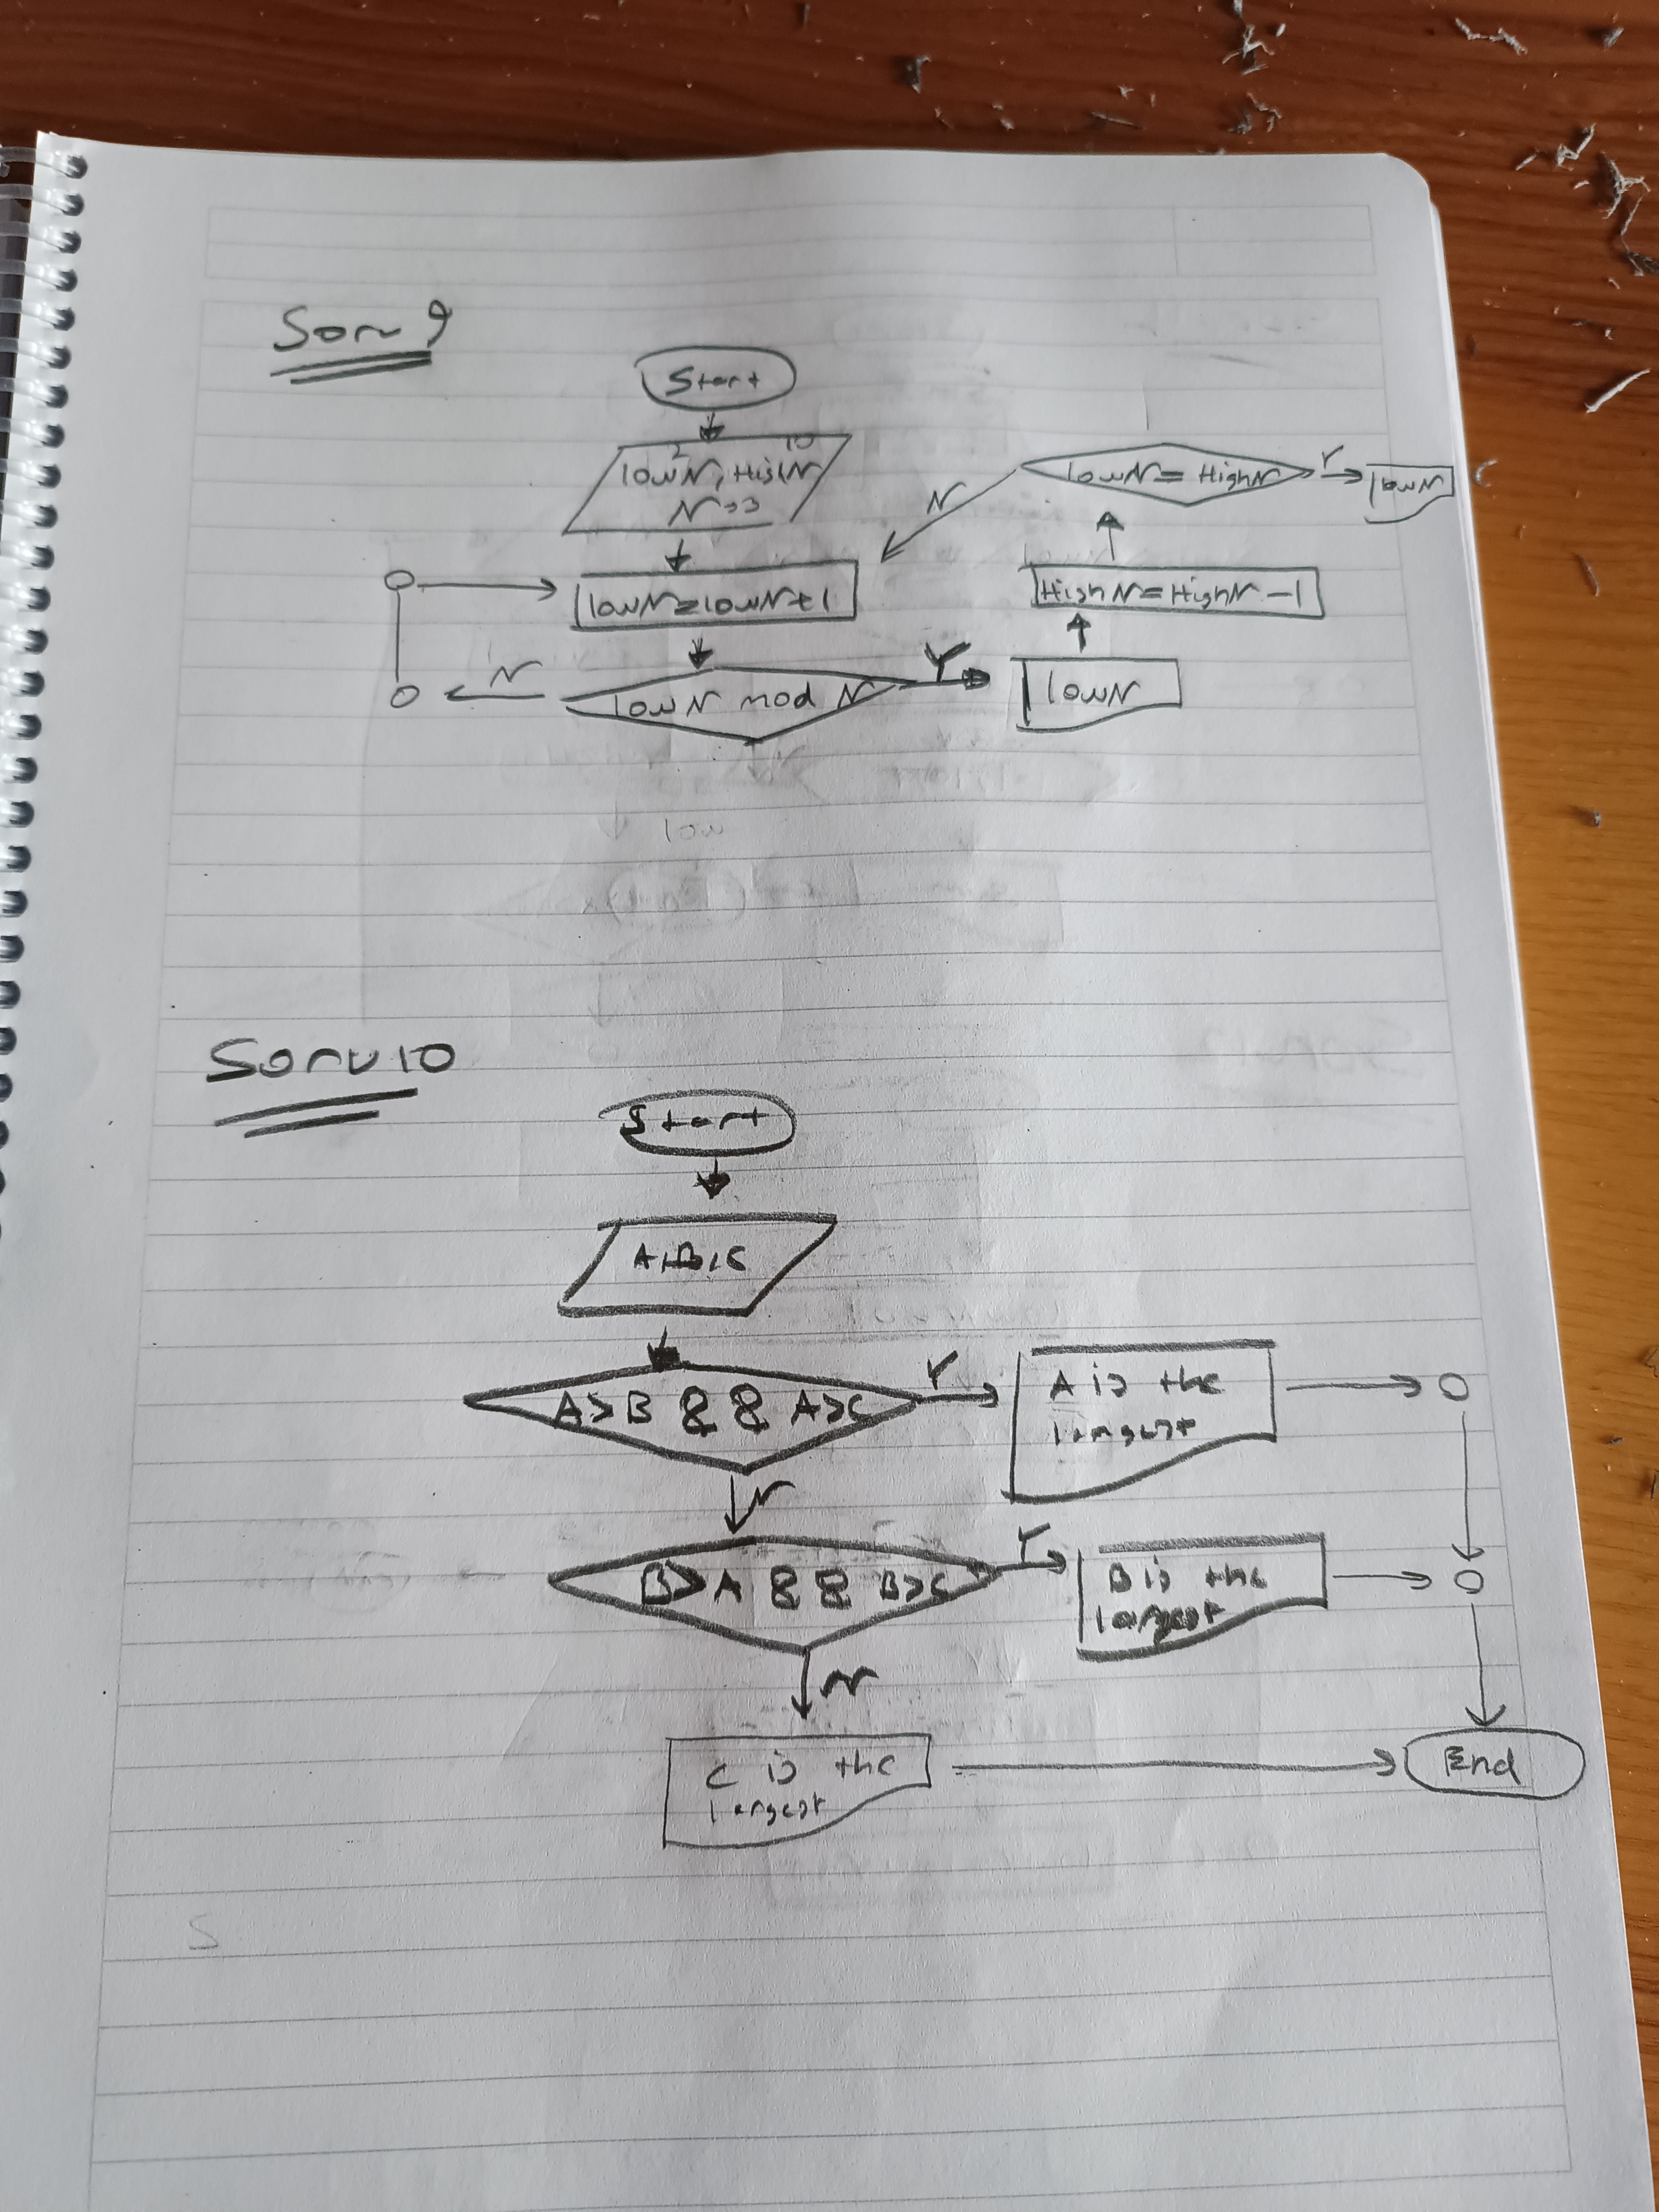 Soru 9
Start
2 10
lowN, HighN
N=3
lowN=lowN+1
lowN mod N
N
Y
lowN
HighN=HighN-1
lowN=HighN
N
Y
lowN
low
Soru 10
Start
A,B,C
A>B && A>C
Y
A is the
largest
N
B>A && B>C
Y
B is the
largest
N
C is the
largest
End
S